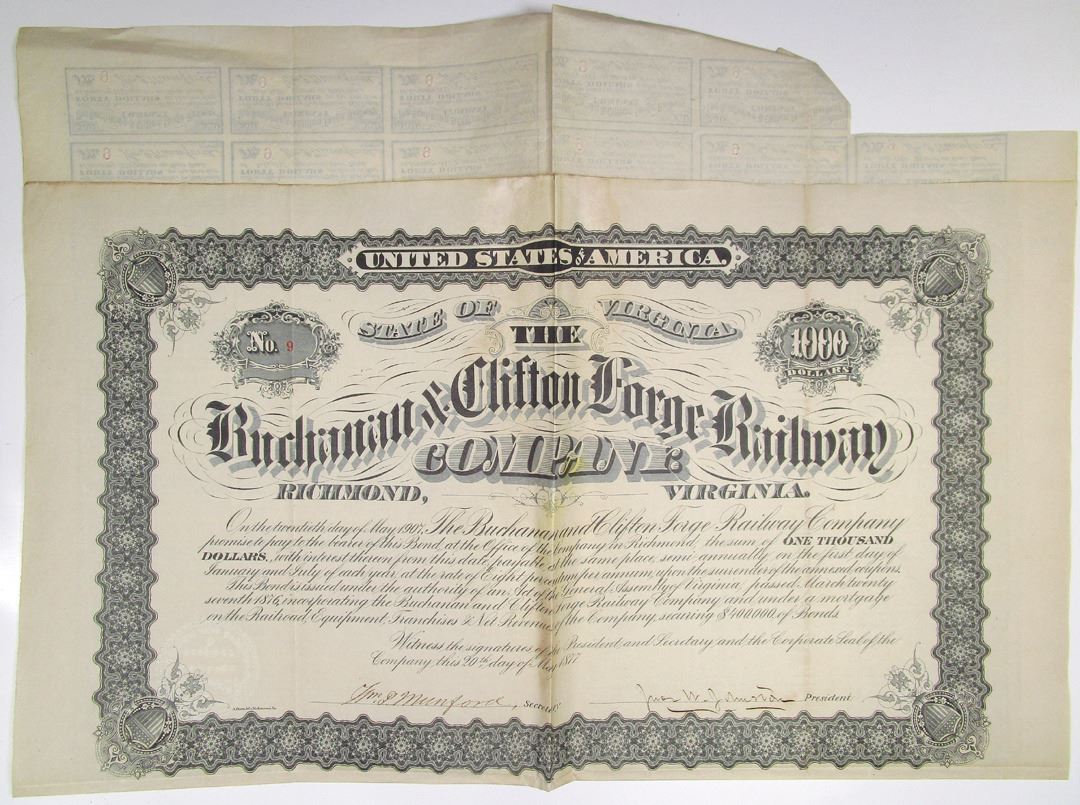 UNITED STATES OF AMERICA.
STATE OF VIRGINIA
No. 9
1000 DOLLARS
THE
Buchanan & Clifton Forge Railway
COMPANY
RICHMOND, VIRGINIA.
On the twentieth day of May 1907, The Buchanan and Clifton Forge Railway Company
promise to pay to the bearer of this Bond, at the Office of the Company in Richmond, the sum of ONE THOUSAND
DOLLARS, with interest thereon from this date, payable at the same place, semi-annually on the first day of
January and July of each year, at the rate of Eight per centum per annum, upon the surrender of the annexed coupons.
This Bond is issued under the authority of an Act of the General Assembly of Virginia passed March twenty
seventh 1876, incorporating the Buchanan and Clifton Forge Railway Company and under a mortgage
on the Railroad, Equipment, Franchises & Net Revenue, of the Company, securing $400,000, of Bonds.
Witness the signatures of the President and Secretary and the Corporate Seal of the
Company, this 20th day of May 1877.
Wm P Munford, Secretary.
Jno. W. Johnston President.